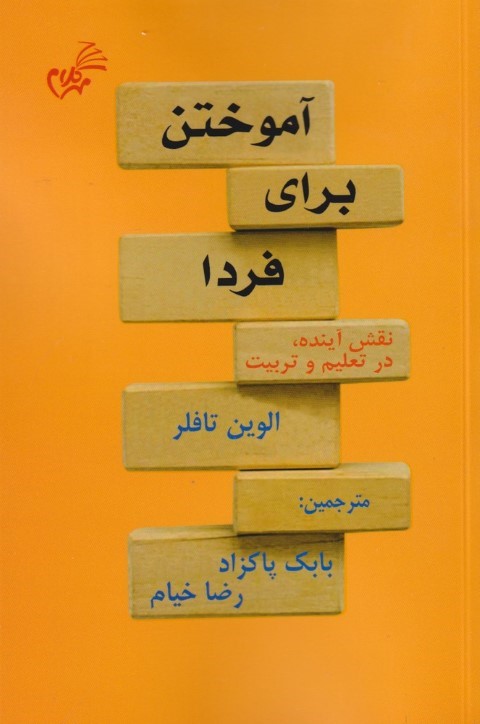 مهرکلام
آموختن
برای
فردا
نقش آینده،
در تعلیم و تربیت
الوین تافلر
مترجمین:
بابک پاکزاد
رضا خیام